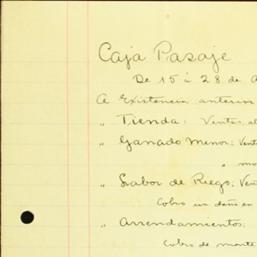 Caja Pasaje
De 15 à 28 de A
A Existencia anterior
" Tienda: Ventas al
" Ganado Menor: Vent
" mo
" Labor de Riego: Ve
Cobro un daño en
" Arrendamiento:
Cobro de monte